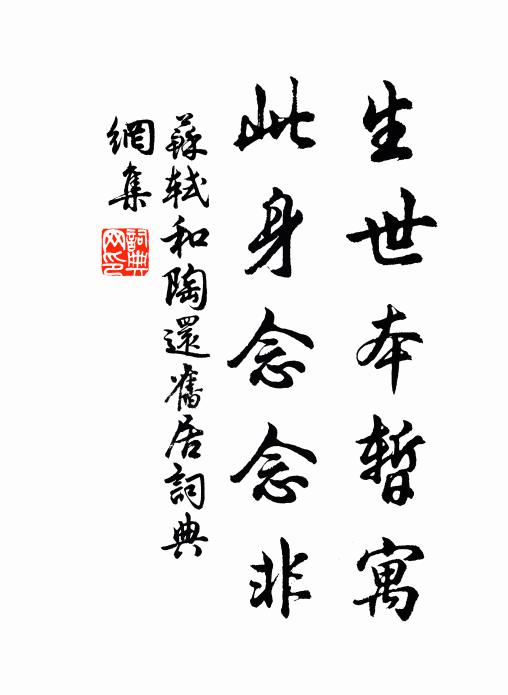 生世本暫寓
此身念念非
蘇軾和陶還舊居詞典
網集
詞典網印